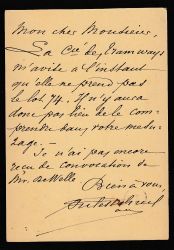 Mon cher Monsieur,
La Cie des Tramways
m'avise à l'instant
qu'elle ne prend pas
le lot 74. Il n'y aura
donc pas lieu de le com-
prendre dans votre mesu-
rage. –
Je n'ai pas encore
reçu de convocation de
Mr. DeWelle.
Bien à vous,